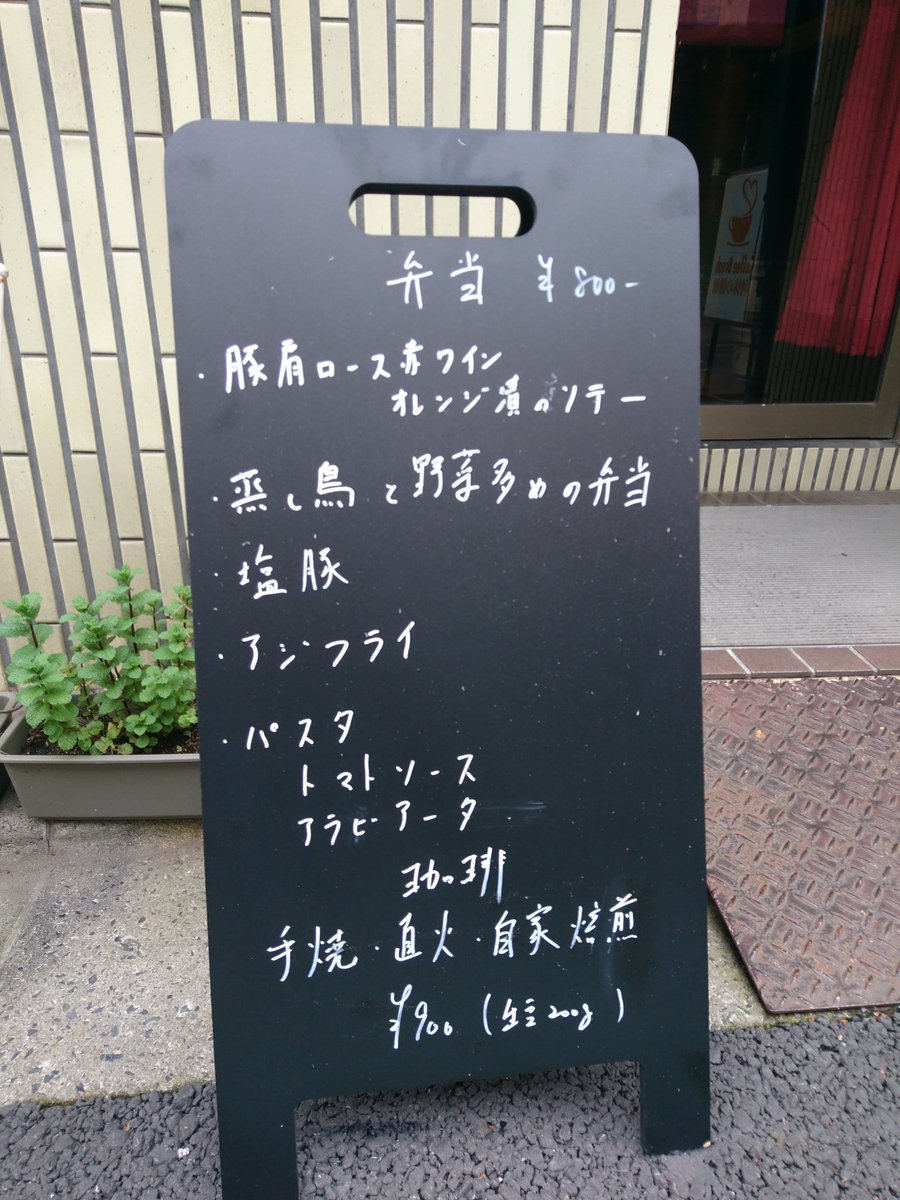 弁当 ¥800-
・豚肩ロース赤ワイン
オレンジ漬のソテー
・蒸し鳥と野菜多めの弁当
・塩豚
・アジフライ
・パスタ
トマトソース
アラビアータ
珈琲
手焼・直火・自家焙煎
¥900 (生豆200g)